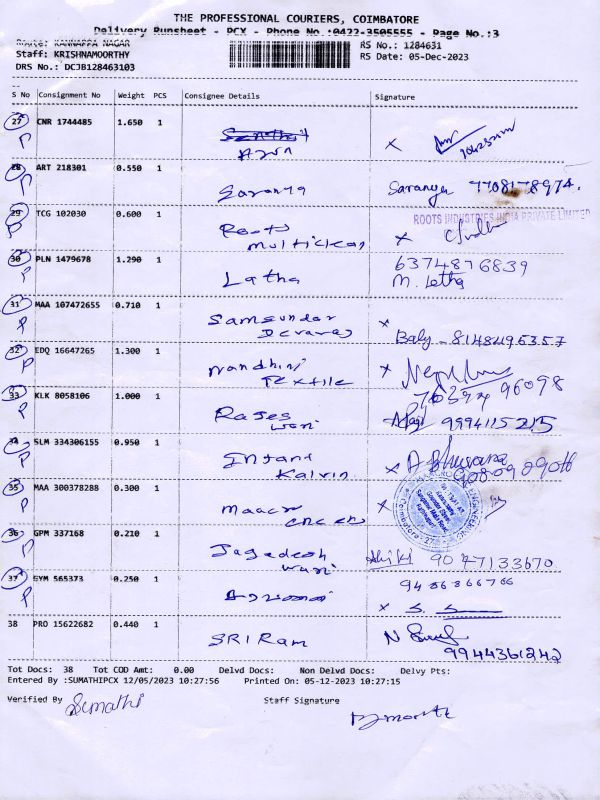 THE PROFESSIONAL COURIERS, COIMBATORE
Delivery Runsheet - PCX - Phone No.:0422-3505555 - Page No.:3
Route: KANNAPPA NAGAR
RS No.: 1284631
Staff: KRISHNAMOORTHY
RS Date: 05-Dec-2023
DRS No.: DCJB128463103
S No Consignment No Weight PCS Consignee Details Signature
27 CNR 1744485 1.650 1
P Arun
28 ART 218301 0.550 1
P Saranya Saranya 7708178974.
29 TCG 102030 0.600 1 ROOTS INDUSTRIES INDIA PRIVATE LIMITED
P Roots x
30 PLN 1479678 1.290 1 6374876839
P Latha M. Letha
31 MAA 107472655 0.710 1 x
P Samsundar
Devaraj Baly - 8148495357
32 EDQ 16647265 1.300 1 x
P Nandhini
Textile 96098
33 KLK 8058106 1.000 1
P Rajes
wari 9994115215
34 SLM 334306155 0.950 1 x
P Kalvin
35 MAA 300378288 0.300 1 x
P
36 GPM 337168 0.210 1
P Jagadesh
wari 9047133670
37 GYM 565373 0.250 1 9486866766
P x S.
38 PRO 15622682 0.440 1
SRIRAM N
9944361242
Tot Docs: 38 Tot COD Amt: 0.00 Delvd Docs: Non Delvd Docs: Delvy Pts:
Entered By :SUMATHIPCX 12/05/2023 10:27:56 Printed On: 05-12-2023 10:27:15
Verified By Sumathi Staff Signature